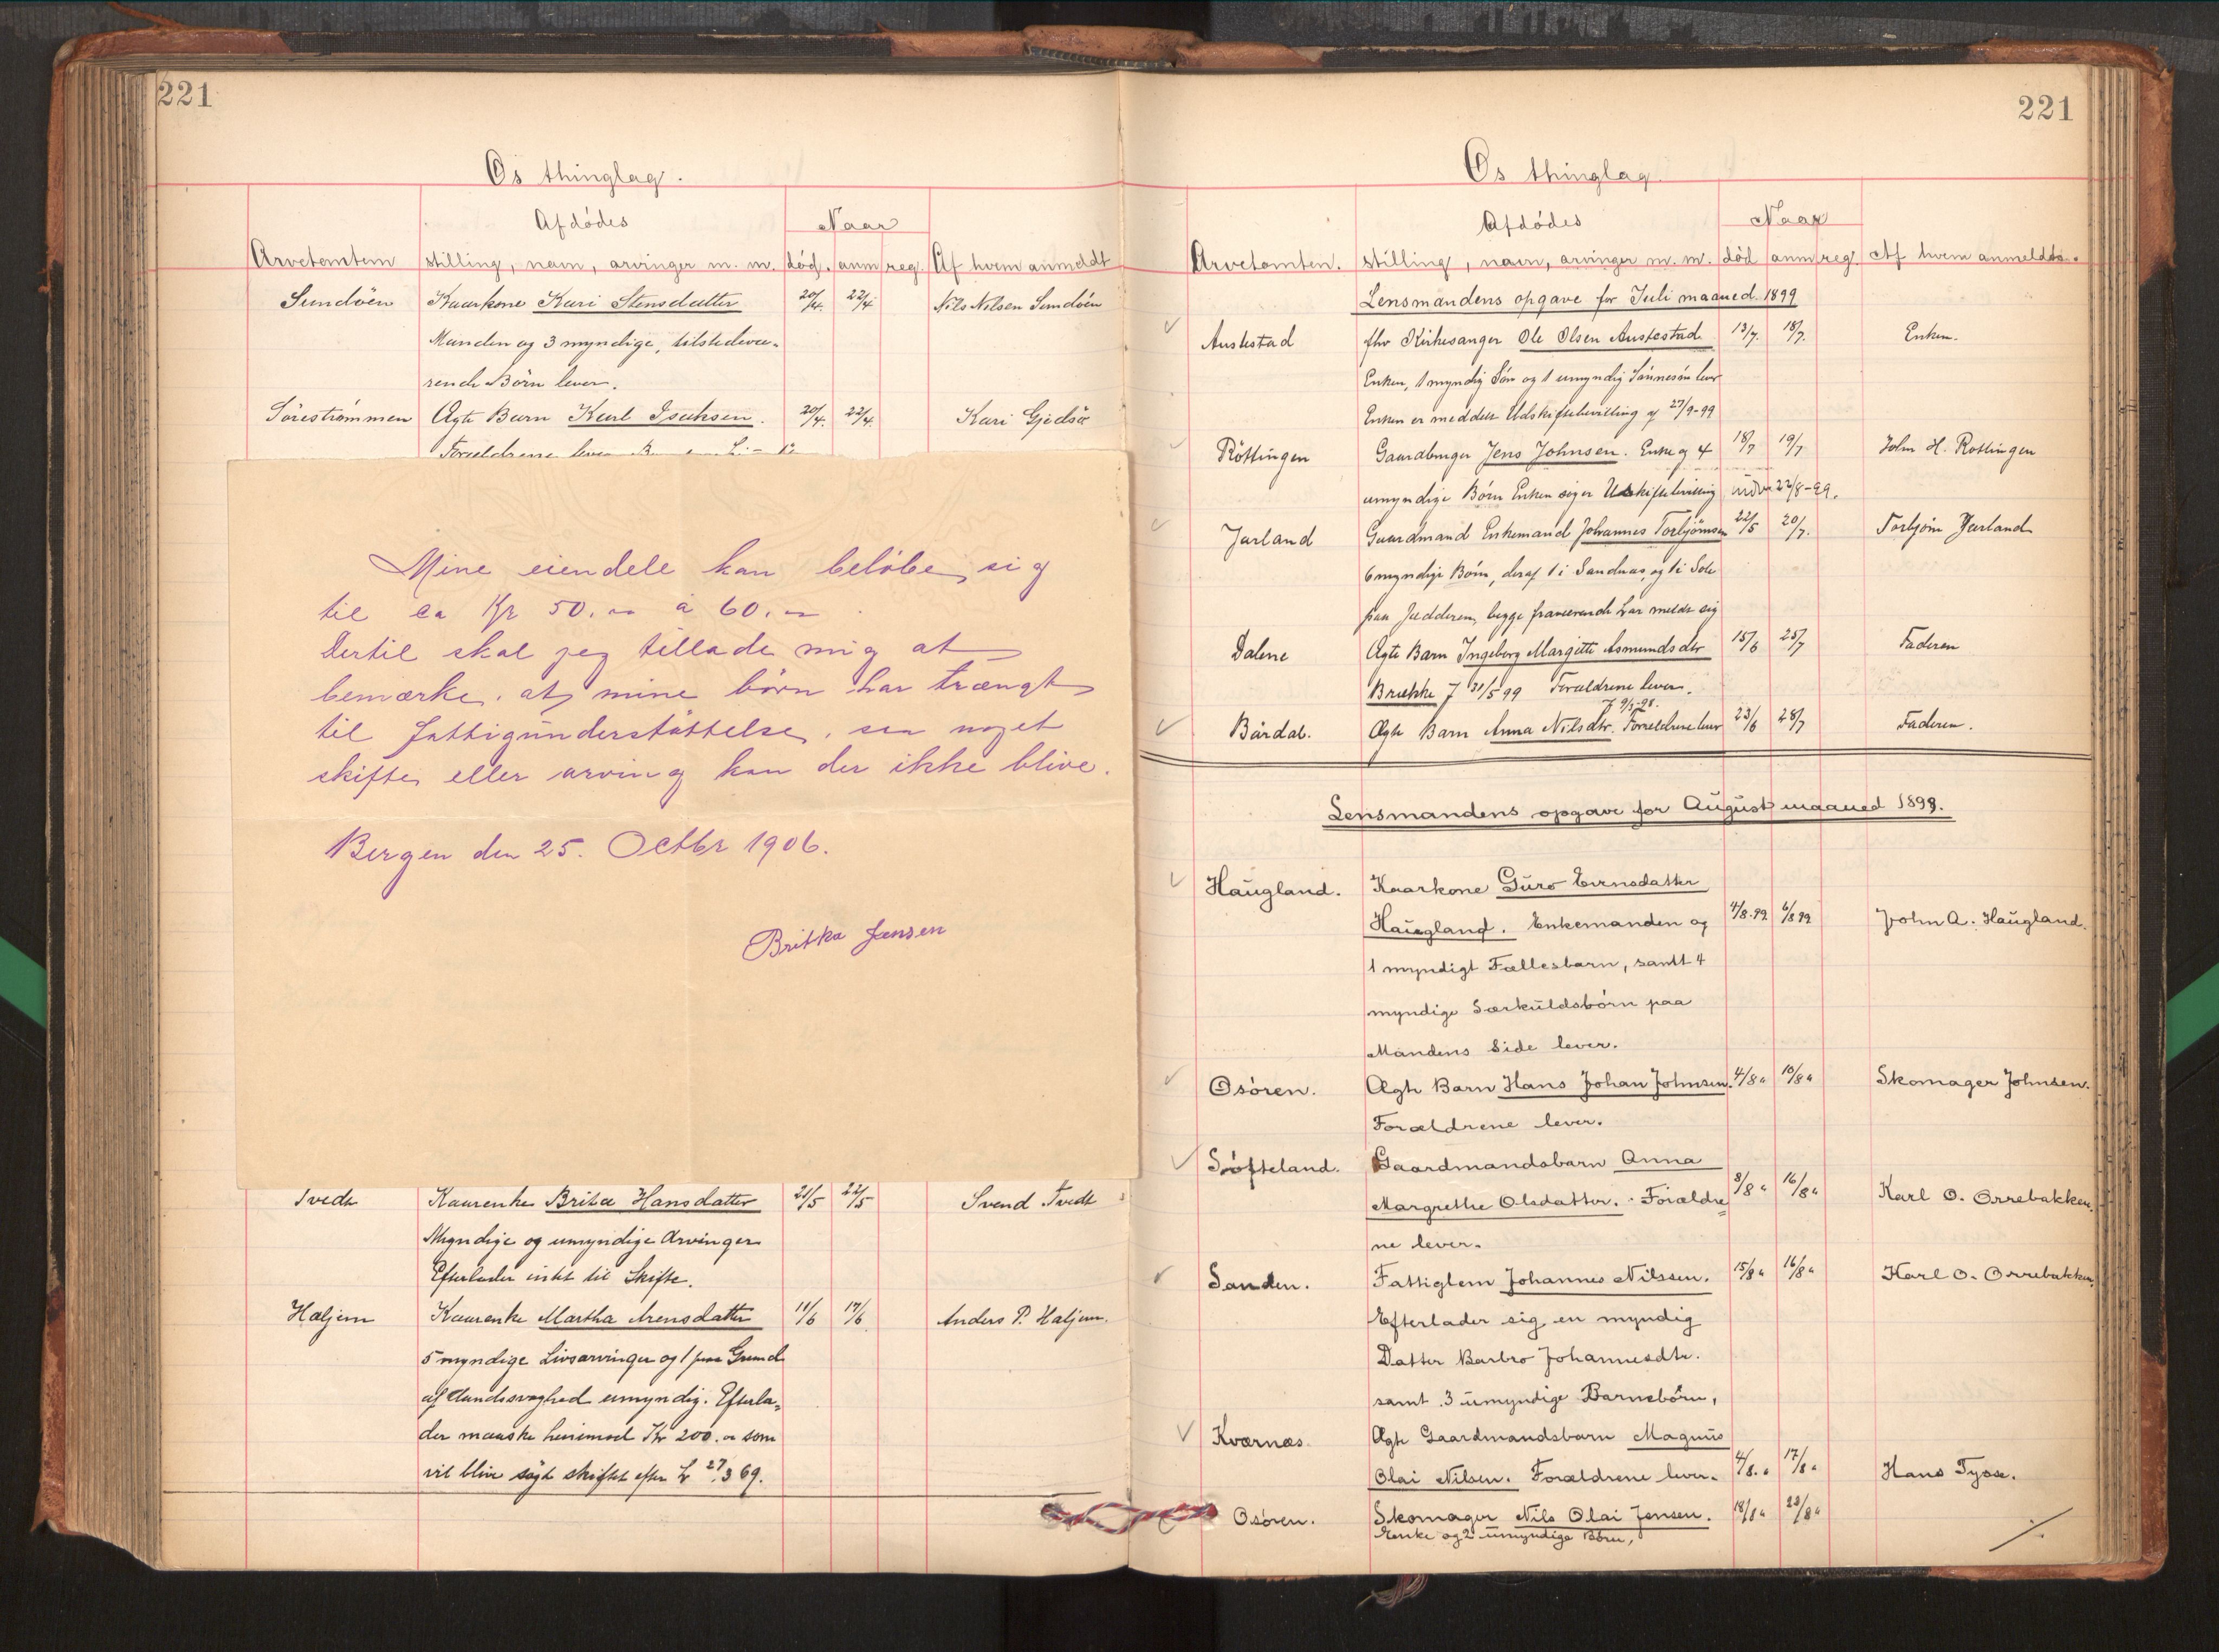 221
Os thinglag.
Afdódes Naar
Arvetomten stilling, navn, arvinger m. m. död. anm reg. Af hvem anmeldt
Sundöen Kaarkone Kari Stensdatter 20/4. 22/4 Nils Nilsen Sundöen
Manden og 3 myndige, tilstedevæ-
rende Börn lever.
Sörestrømmen Ægte Barn Karl Isaksen. 20/4. 22/4. Kari Gjedsö
Forældrene lever
Mine eiendele kan belöbe sig
til ca Kr 50.00 á 60.00
Dertil skal jeg tillade mig at
bemærke, at mine börn har trængt
til fattigünderstöttelse, saa noget
skifte eller arving kan der ikke blive.
Bergen den 25. Octbr 1906.
Britha Jensen
Tvedt Kaarenke Brita Hansdatter 21/5 22/5 Svend Tvedt
Myndige og umyndige Arvinger
Efterlader intet til Skifte.
Haljem Kaarenke Martha Arensdatter 11/6 17/6 Anders P. Haljem.
5 myndige Livsarvinger og 1 paa Grund
af Aandssvaghed umyndig. Efterla-
der maaske henimod Kr 200.00 som
vil blive sögt skiftet efter L 27.3 69.
221
Os thinglag.
Afdódes Naar
Arvetomten. stilling, navn, arvinger m. m. död anm reg. Af hvem anmeldt.
Lensmandens opgave for Juli maaned 1899
Austestad fhv Kirkesanger Ole Olsen Austestad 13/7. 18/7. Enken.
Enken, 1 myndig Sön og 1 umyndig Sönnesön lever
Enken er meddelt Udskiftebevilling af 27/9-99
Röttingen Gaardbruger Jens Johnsen. Enke og 4 18/7 19/7 John H. Rottingen
umyndige Börn Enken söger Uskiftebevilling 22/8-99.
Jarland Gaardmand Enkemand Johannes Torbjörnsen 22/5 20/7. Torbjörn Jarland
6 myndige Börn, deraf 1 i Sandnæs, og 1 i Sole
paa Jædderen, begge fraværende har meldt sig
Dalene Ægte Barn Ingeborg Margitte Asmundsdtr 15/6 25/7 Faderen
Brække f 31/5 99 Forældrene lever.
f 9/5-98.
Bärdal. Ægte Barn Anna Nilsdtr. Forældrene lever 23/6 28/7 Faderen.
Lensmandens opgave for August maaned 1899.
Haügland. Kaarkone Güro Evensdatter
Haügland. Enkemanden og 4/8.99 6/8 99 John A. Haügland.
1 myndigt Fællesbarn, samt 4
myndige Særküldsbörn paa
Mandens Side lever.
Osören. Ægte Barn Hans Johan Johnsen. 4/8 " 10/8 " Skomager Johnsen.
Forældrene lever.
Söfteland. Gaardmandsbarn Anna
Margrethe Olsdatter. Forældre= 8/8 " 16/8 " Karl O. Orrebakken.
ne lever.
Sanden. Fattiglem Johannes Nilssen. 15/8 " 16/8 " Karl O. Orrebakken.
Efterlader sig en myndig
Datter Barbro Johannesdtr.
samt 3 ümyndige Barnebörn,
Kværnæs Ægte Gaardmandsbarn Magnüs
Olai Nilsen. Forældrene lever. 4/8. " 17/8 " Hans Tysse.
Osören. Skomager Nils Olai Jensen. 18/8 " 23/8 "
Enke og 2 ümyndige Börn,